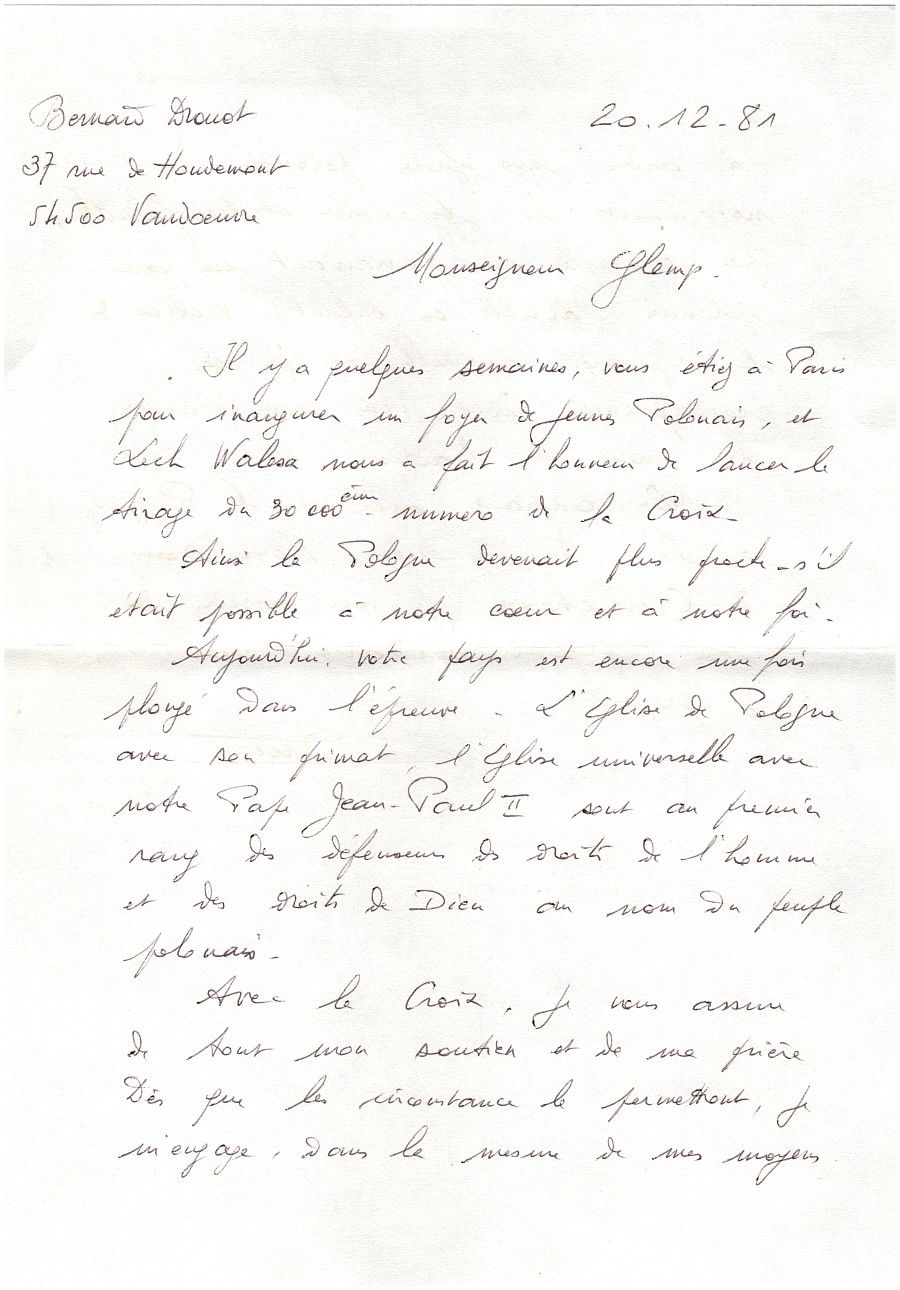 Bernard Drouot
20.12.81
37 rue de Houdemont
54500 Vandoeuvre
Monseigneur Glemp.
Il y a quelques semaines, vous étiez à Paris
pour inaugurer un foyer de jeunes Polonais, et
Lech Walesa nous a fait l'honneur de lancer le
tirage du 30 000ème numero de la Croix-
Ainsi la Pologne devenait plus proche - s'il
était possible à notre coeur et à notre foi.
Aujourd'hui, votre pays est encore une fois
plongé dans l'épreuve - L'Eglise de Pologne
avec son primat, l'Eglise universelle avec
notre Pape Jean-Paul II sont au premier
rang des défenseurs des droits de l'homme
et des droits de Dieu au nom du peuple
polonais-
Avec la Croix, je vous assure
de tout mon soutien et de ma prière
Dès que les circonstance le permettront, je
m'engage, dans la mesure de mes moyens